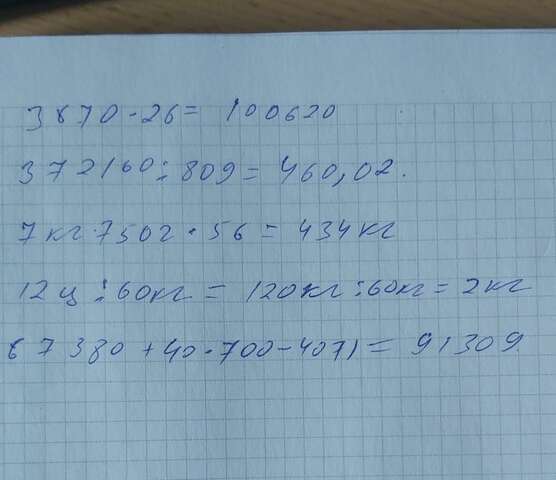 3870·26= 100620
372160:809=460,02.
7кг 750г·56=434кг
12ц:60кг=120кг:60кг=2кг
67380+40·700-4071=91309